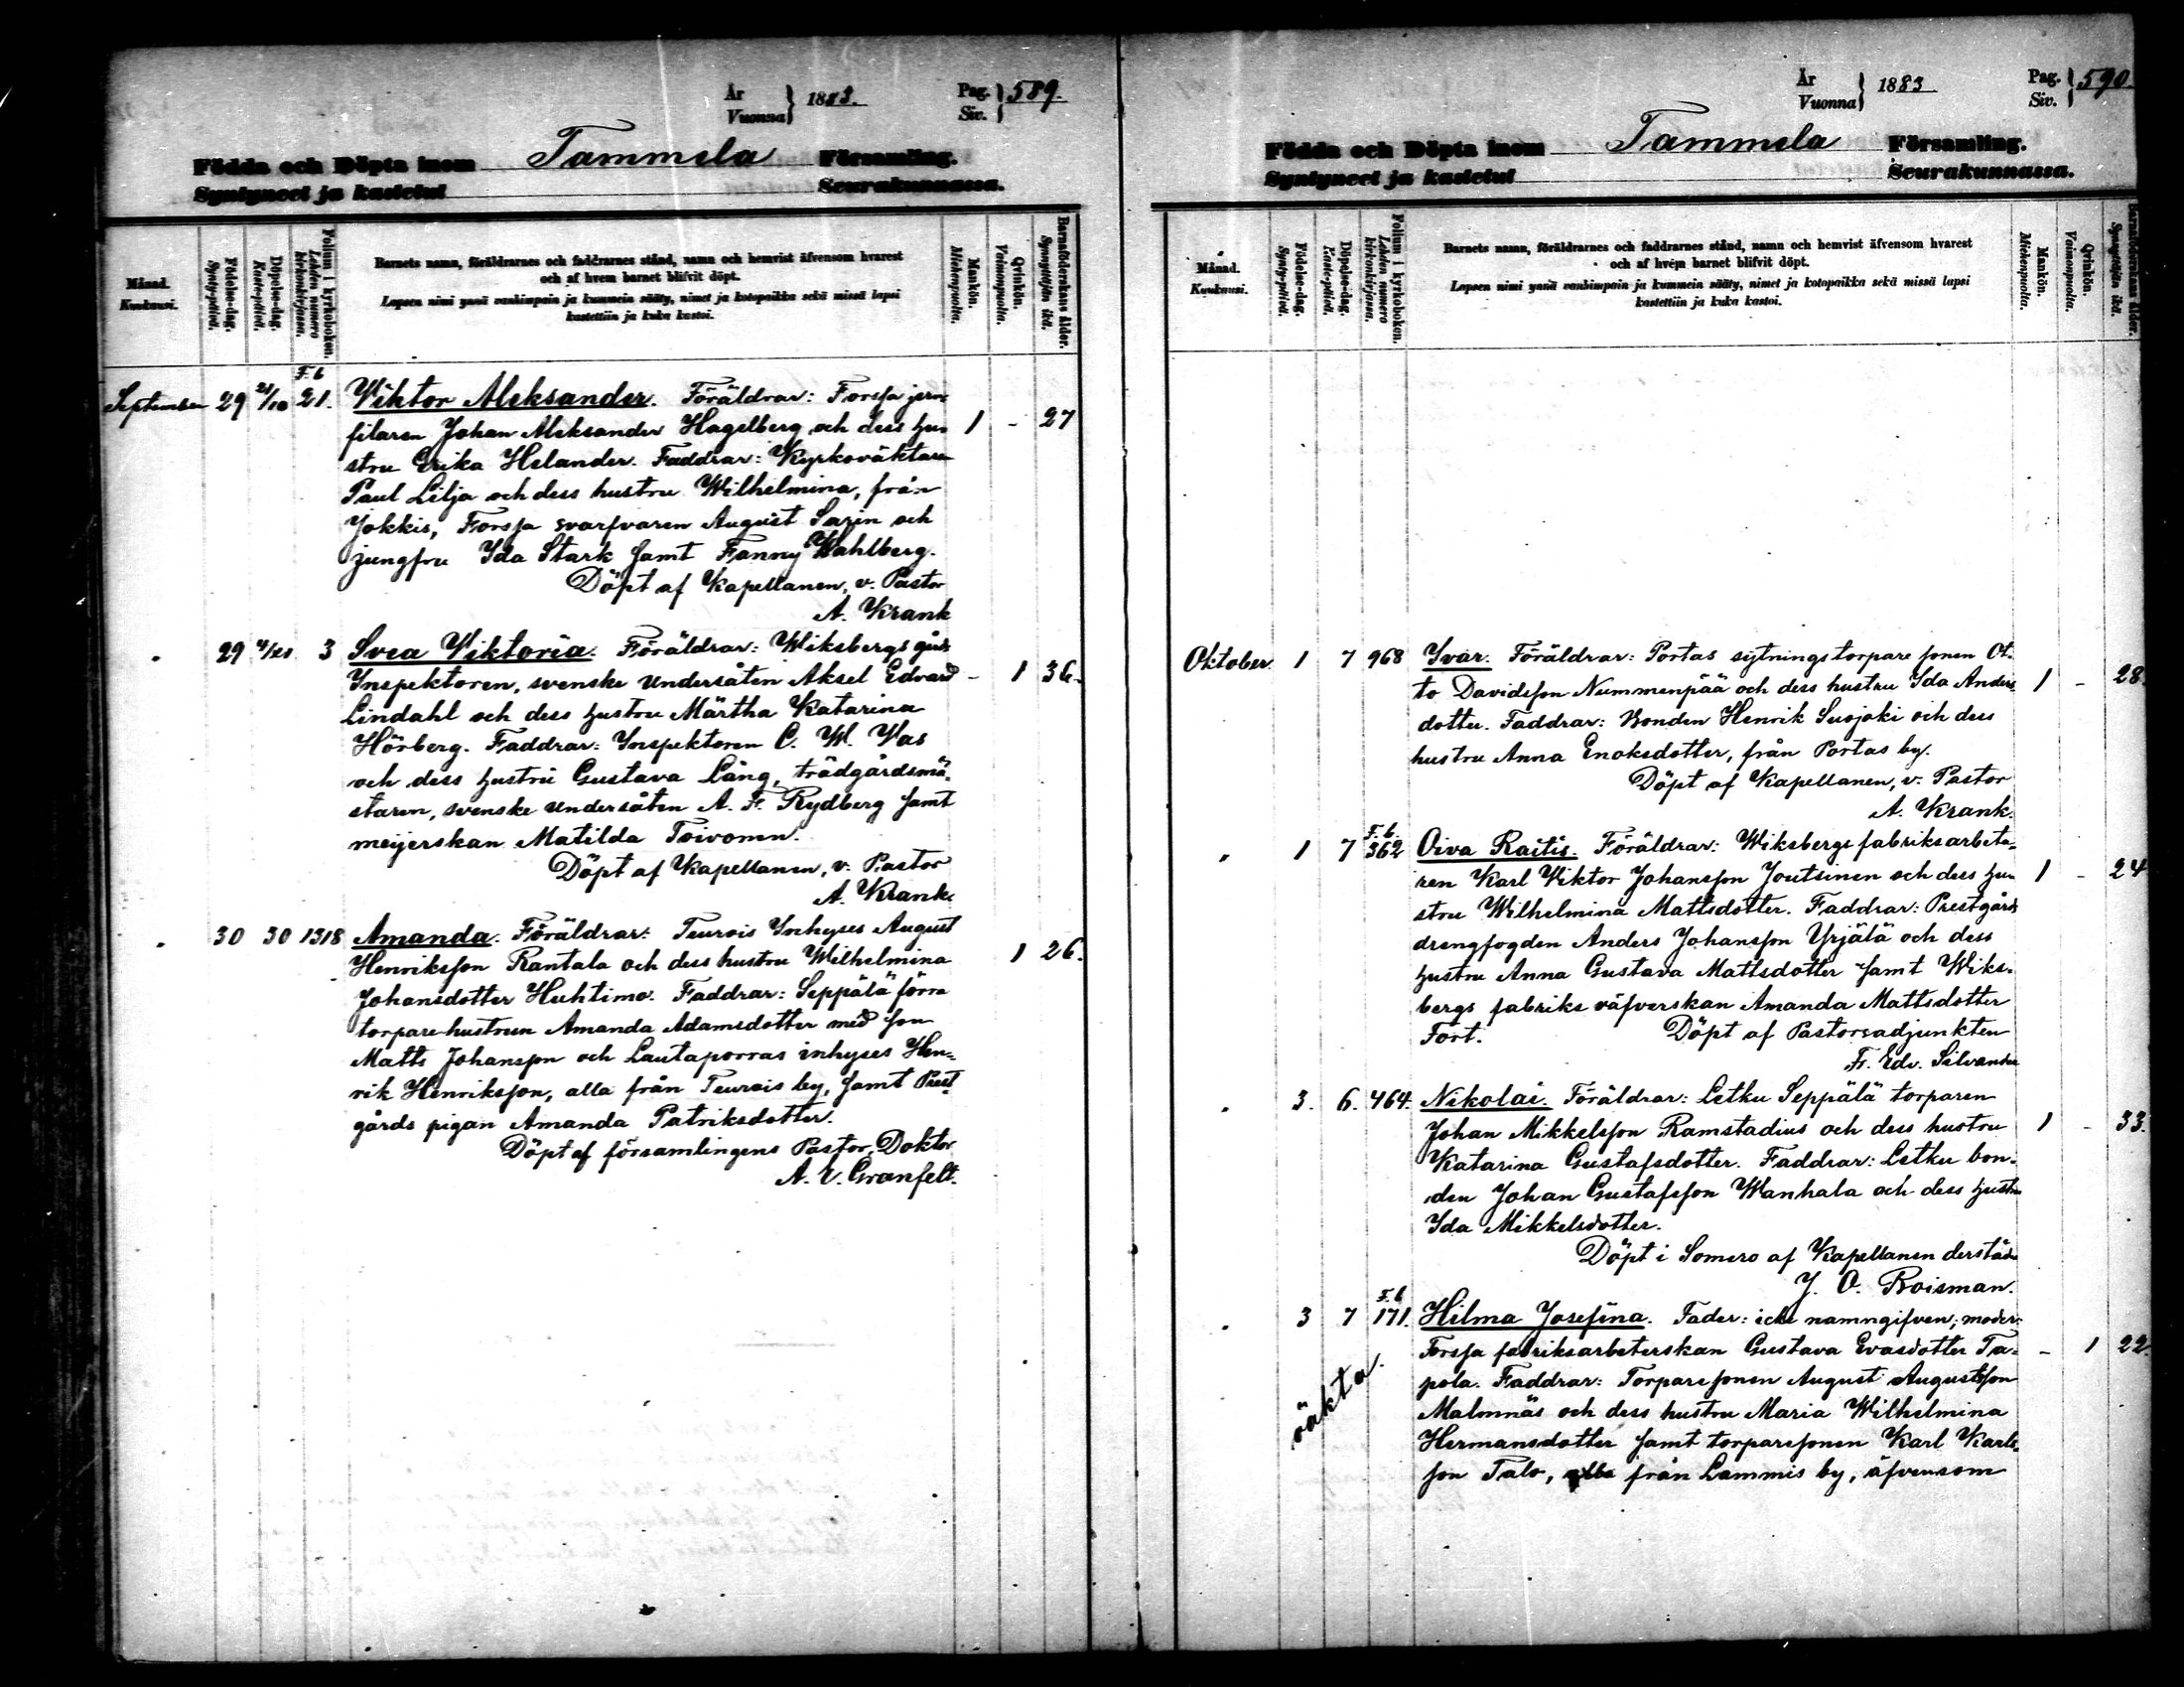 År
Vuonna } 1883. Pag.
Siv. } 589.
Födda och Döpta inom Tammela Församling.
Syntyneet ja kastetut Seurakunnassa.
Månad.
Kuukausi.
Födelse-dag.
Synty-päivä.
Döpelse-dag.
Kaste-päivä.
Folium i kyrkoboken.
Lehden numero kirkonkirjassa.
Barnets namn, föräldrarnes och faddrarnes stånd, namn och hemvist äfvensom hvarest
och af hvem barnet blifvit döpt.
Lapsen nimi ynnä vanhimpain ja kummein sääty, nimet ja kotopaikka sekä missä lapsi
kastettiin ja kuka kastoi.
Mankön.
Miehenpuolta.
Qvinkön.
Vaimonpuolta.
Barnaföderskans ålder.
Synnyttäjän ikä.
F. b
September 29 21/10 21. Wiktor Aleksander. Föräldrar: Forssa jern
filaren Johan Aleksander Hagelberg och dess hu- 1 - 27
stru Erika Helander. Faddrar: Kyrkoväktaren
Paul Lilja och dess hustru Wilhelmina, från
Jokkis, Forssa svarfvaren August Sarin och
jungfru Ida Stark samt Fanny Wahlberg.
Döpt af Kapellanen, v. Pastor
A. Krank
" 29 3 Svea Viktoria. Föräldrar: Wiksbergs gårds
Inspektoren, svenske undersåten Aksel Edvard - 1 36.
Lindahl och dess hustru Märtha Katarina
Hörberg. Faddrar: Inspektoren C. W. Was
och dess hustru Gustava Lång, trädgårdsmä-
staren, svenske undersåten A. F. Rydberg samt
meijerskan Matilda Toivonen.
Döpt af Kapellanen, v. Pastor
A. Krank.
" 30 30 1318 Amanda. Föräldrar: Teurois Inhyses August
Henriksson Rantala och dess hustru Wilhelmina 1 26.
Johansdotter Huhtimo. Faddrar: Seppälä förra
torpare hustrun Amanda Adamsdotter med son
Matts Johansson och Lautaporras inhyses Hen-
rik Henriksson, alla från Teurois by, samt Prest
gårds pigan Amanda Patriksdotter.
Döpt af församlingens Pastor, Doktor
A. V. Granfelt.
År
Vuonna } 1883 Pag.
Siv. } 590.
Födda och Döpta inom Tammela Församling.
Syntyneet ja kastetut Seurakunnassa.
Månad.
Kuukausi.
Födelse-dag.
Synty-päivä.
Döpelse-dag.
Kaste-päivä.
Folium i kyrkoboken.
Lehden numero kirkonkirjassa.
Barnets namn, föräldrarnes och faddrarnes stånd, namn och hemvist äfvensom hvarest
och af hvem barnet blifvit döpt.
Lapsen nimi ynnä vanhimpain ja kummein sääty, nimet ja kotopaikka sekä missä lapsi
kastettiin ja kuka kastoi.
Mankön.
Miehenpuolta.
Qvinkön.
Vaimonpuolta.
Barnaföderskans ålder.
Synnyttäjän ikä.
Oktober. 1 7 968 Ivar. Föräldrar: Portas sytningstorpare sonen Ot-
to Davidsson Nummenpää och dess hustru Ida Anders 1 - 28.
dotter. Faddrar: Bonden Henrik Suojoki och dess
hustru Anna Enoksdotter, från Portas by.
Döpt af Kapellanen, v. Pastor
A. Krank.
F. b.
" 1 7 362 Oiva Raitis. Föräldrar: Wiksbergs fabriksarbeta-
ren Karl Viktor Johansson Joutsinen och dess hu 1 - 24
stru Wilhelmina Mattsdotter. Faddrar: Prestgårds
drengfogden Anders Johansson Yrjälä och dess
hustru Anna Gustava Mattsdotter samt Wiks-
bergs fabriks väfverskan Amanda Mattsdotter
Fört. Döpt af Pastorsadjunkten
Fr. Edv. Silvander
" 3. 6. 464. Nikolai. Föräldrar: Letku Seppälä torparen
Johan Mikkelsson Ramstadius och dess hustru 1 - 33.
Katarina Gustafsdotter. Faddrar: Letku bon-
den Johan Gustafsson Wanhala och dess hustru
Ida Mikkelsdotter.
Döpt i Somero af Kapellanen derstädes
J. O. Roisman.
F. b
" 3 7 171. Hilma Josefina. Fader: icke namngifven; moder:
Forssa fabriksarbeterskan Gustava Evasdotter Ta- - 1 22.
oäkta.
pola. Faddrar: Torparesonen August Augustsson
Malmnäs och dess hustru Maria Wilhelmina
Hermansdotter samt torparesonen Karl Karls-
son Talo, alla från Lammis by, äfvensom